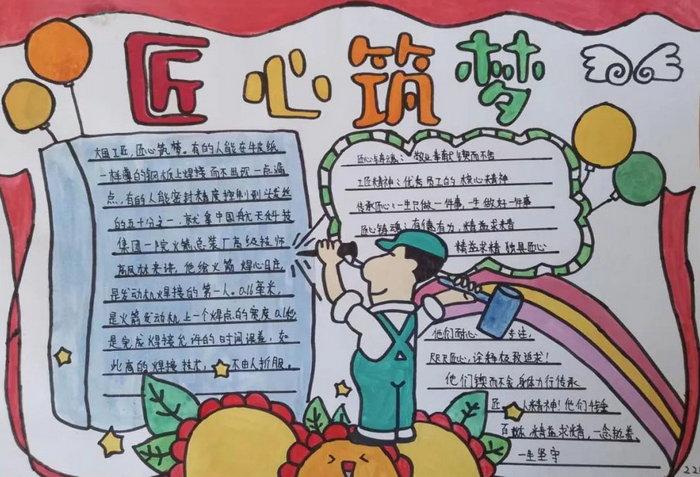 匠心筑梦
大国工匠,匠心筑梦。有的人能在牛皮纸
一样薄的钢板上焊接而不出现一点漏
点,有的人能密封精度控制到头发丝
的五十分之一,就拿中国航天科技
集团一院火箭总装厂高级技师
高凤林来讲,他给火箭焊心日庄
是发动机焊接的第一人。0.16毫米,
是火箭发动机上一个焊点的宽度0.1秒
是完成焊接允许的时间误差,如
此高的焊接技术,不由人折服。
匠心铸魂:敬业奉献 锲而不舍
工匠精神:优秀员工的核心精神
传承匠心:一生只做一件事,一生做好一件事
匠心铸魂:有德有力,精益求精
精益求精 独具匠心
他们耐心 专注,
匠心,诠释极致追求!
他们锲而不舍,身体力行传承
匠人精神!他们传承
百 精益求精,一念执着,
一生坚守